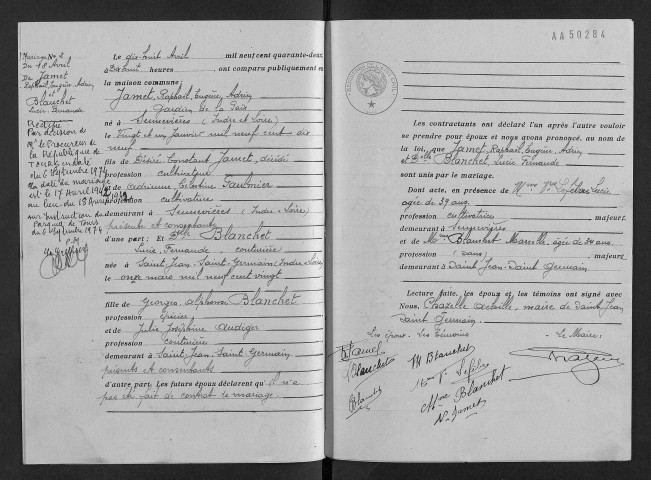 Mariage N° 2
Du 18 Avril
Du
Jamet
Raphaël, Eugène, Adrien
et
Blanchet
Lucie Fernande
Rectifié
Par décision de
Mr le Procureur de
la République de
Tours en date
du 6 Septembre 1974
la date du mariage
est le 17 Avril 1942
au lieu du 18 Avril
sur instruction du
Parquet de Tours
du 6 septembre 1974
Le dix-huit Avril mil neuf cent quarante-deux
à Dix huit heures, ont comparu publiquement en
la maison commune:
Jamet, Raphaël, Eugène, Adrien
Gardien de la Paix
né à Sennevières (Indre et Loire)
le Vingt et un Janvier mil neuf cent dix
neuf
fils de Désiré Constant Jamet, décédé
profession cultivateur
et de Adrienne Célestine Faulnier
profession cultivatrice
demeurant à Sennevières (Indre & Loire)
présente et consentante
d'une part; Et Delle Blanchet
Lucie, Fernande couturière
née à Saint Jean-Saint Germain (Indre & Loire)
le onze mars mil neuf cent vingt
fille de Georges Alphonse Blanchet
profession épicier
et de Julie Joséphine Audiger
profession couturière
demeurant à Saint Jean-Saint Germain
présents et consentants
d'autre part. Les futurs époux déclarent qu'il n'a
pas été fait de contrat de mariage.
AA50284
Les contractants ont déclaré l'un après l'autre vouloir
se prendre pour époux et nous avons prononcé, au nom de
la loi, que Jamet, Raphaël, Eugène, Adrien
et Delle Blanchet, Lucie Fernande
sont unis par le mariage.
Dont acte, en présence de Mme Vve Lefebvre Lucie
agée de 39 ans,
profession cultivatrice majeur
demeurant à Sennevières
et de Mme Blanchet Marcelle agée de 34 ans.
profession (sans) , majeure
demeurant à Saint Jean-Saint Germain
Lecture faite, les époux et les témoins ont signé avec
Nous, Chazelle Achille, maire de Saint Jean
Saint Germain.
Les époux. Les Témoins Le Maire:
Jamet
L Blanchet
Blanchet
Mme Blanchet